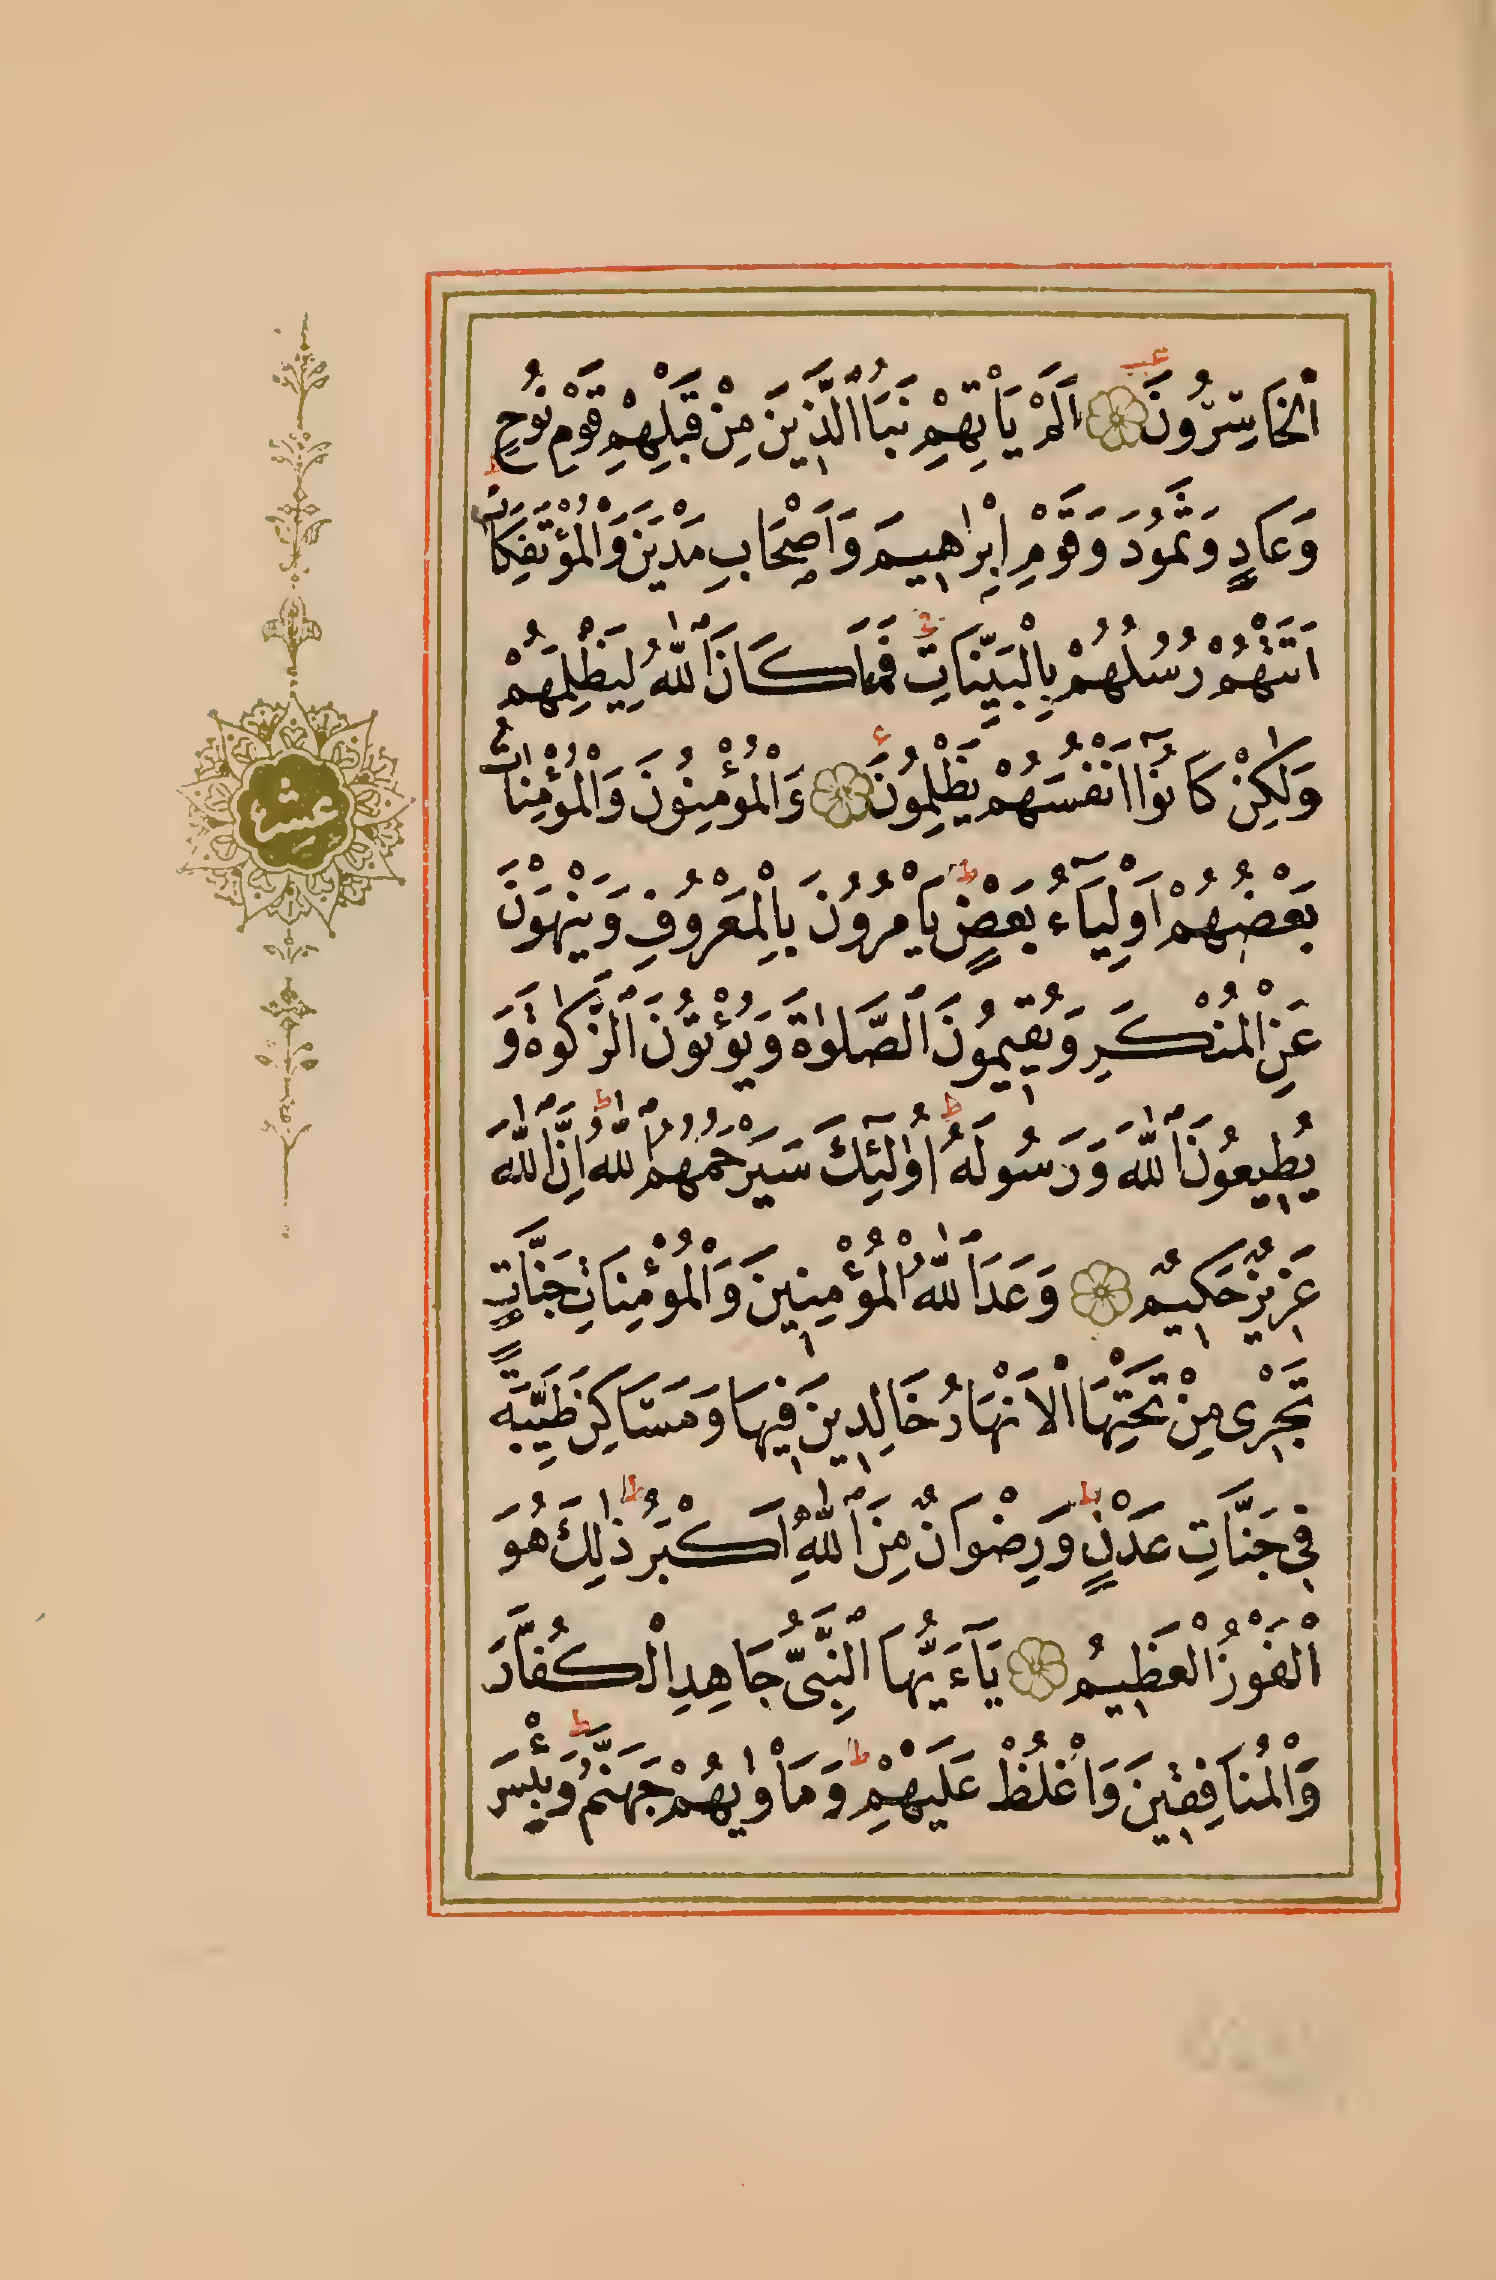 اَلْخَاسِرُونَ اَلَمْ يَاْتِهِمْ نَبَاُ الَّذِينَ مِنْ قَبْلِهِمْ قَوْمِ نُوحٍ
وَعَادٍ وَثَمُودَ وَقَوْمِ اِبْرٰهِيمَ وَاَصْحَابِ مَدْيَنَ وَالْمُؤْتَفِكَاتِ
اَتَتْهُمْ رُسُلُهُمْ بِالْبَيِّنَاتِ فَمَا كَانَ اللّٰهُ لِيَظْلِمَهُمْ
وَلٰكِنْ كَانُوٓا اَنْفُسَهُمْ يَظْلِمُونَ وَالْمُؤْمِنُونَ وَالْمُؤْمِنَاتُ
بَعْضُهُمْ اَوْلِيَآءُ بَعْضٍ يَاْمُرُونَ بِالْمَعْرُوفِ وَيَنْهَوْنَ
عَنِ الْمُنْكَرِ وَيُقِيمُونَ الصَّلٰوةَ وَيُؤْتُونَ الزَّكٰوةَ وَ
يُطِيعُونَ اللّٰهَ وَرَسُولَهُ اُولٰٓئِكَ سَيَرْحَمُهُمُ اللّٰهُ اِنَّ اللّٰهَ
عَزِيزٌ حَكِيمٌ وَعَدَ اللّٰهُ الْمُؤْمِنِينَ وَالْمُؤْمِنَاتِ جَنَّاتٍ
تَجْرِى مِنْ تَحْتِهَا الْاَنْهَارُ خَالِدِينَ فِيهَا وَمَسَاكِنَ طَيِّبَةً
فِى جَنَّاتِ عَدْنٍ وَرِضْوَانٌ مِنَ اللّٰهِ اَكْبَرُ ذٰلِكَ هُوَ
الْفَوْزُ الْعَظِيمُ يَآءَيُّهَا النَّبِىُّ جَاهِدِ الْكُفَّارَ
وَالْمُنَافِقِينَ وَاغْلُظْ عَلَيْهِمْ وَمَاْوٰيهُمْ جَهَنَّمُ وَبِئْسَ
عشر